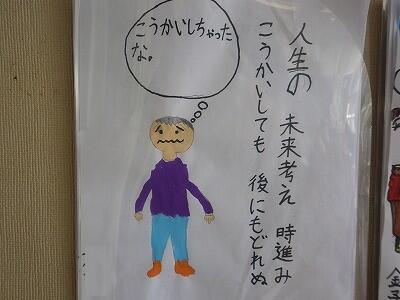 人生の 未来考え 時進み
こうかいしても 後にもどれぬ
こうかいしちゃった
な。